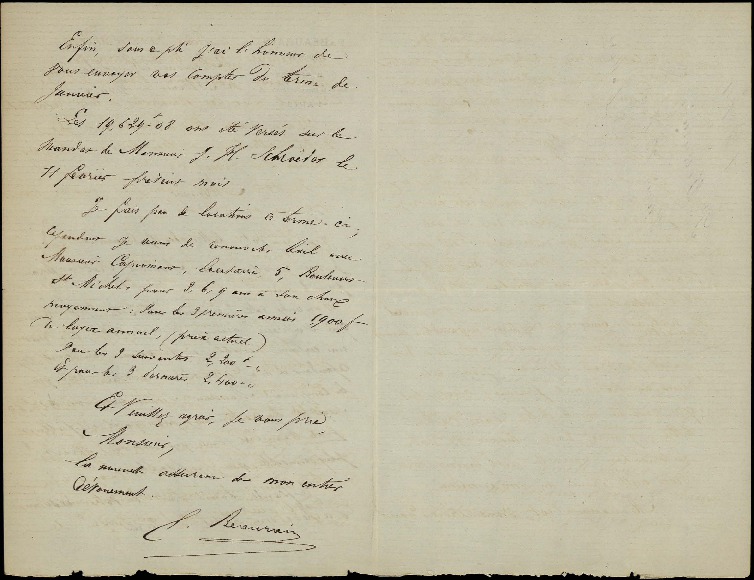 Enfin, sous ce pli j'ai l'honneur de
vous envoyer vos comptes du terme de
Janvier.
Les 19,629.08 ont été versés sur le
mandat de Monsieur J. H. Schröder le
11 février prochain mois
Je fais peu de locations à terme-ci,
cependant je viens de bail avec
Monsieur locataire, 5, Boulevard
St Michel, pour 3, 6, 9 ans à son choix
moyennant: Pour les 3 premières années 1,900 f
de loyer annuel (prix actuel)
Pour les 3 suivantes 2,200 f
Et pour les 3 dernières 2,400
Et Veuillez agréer, je vous prie
Monsieur,
la nouvelle assurance de mon entier
dévouement
Beauvrain